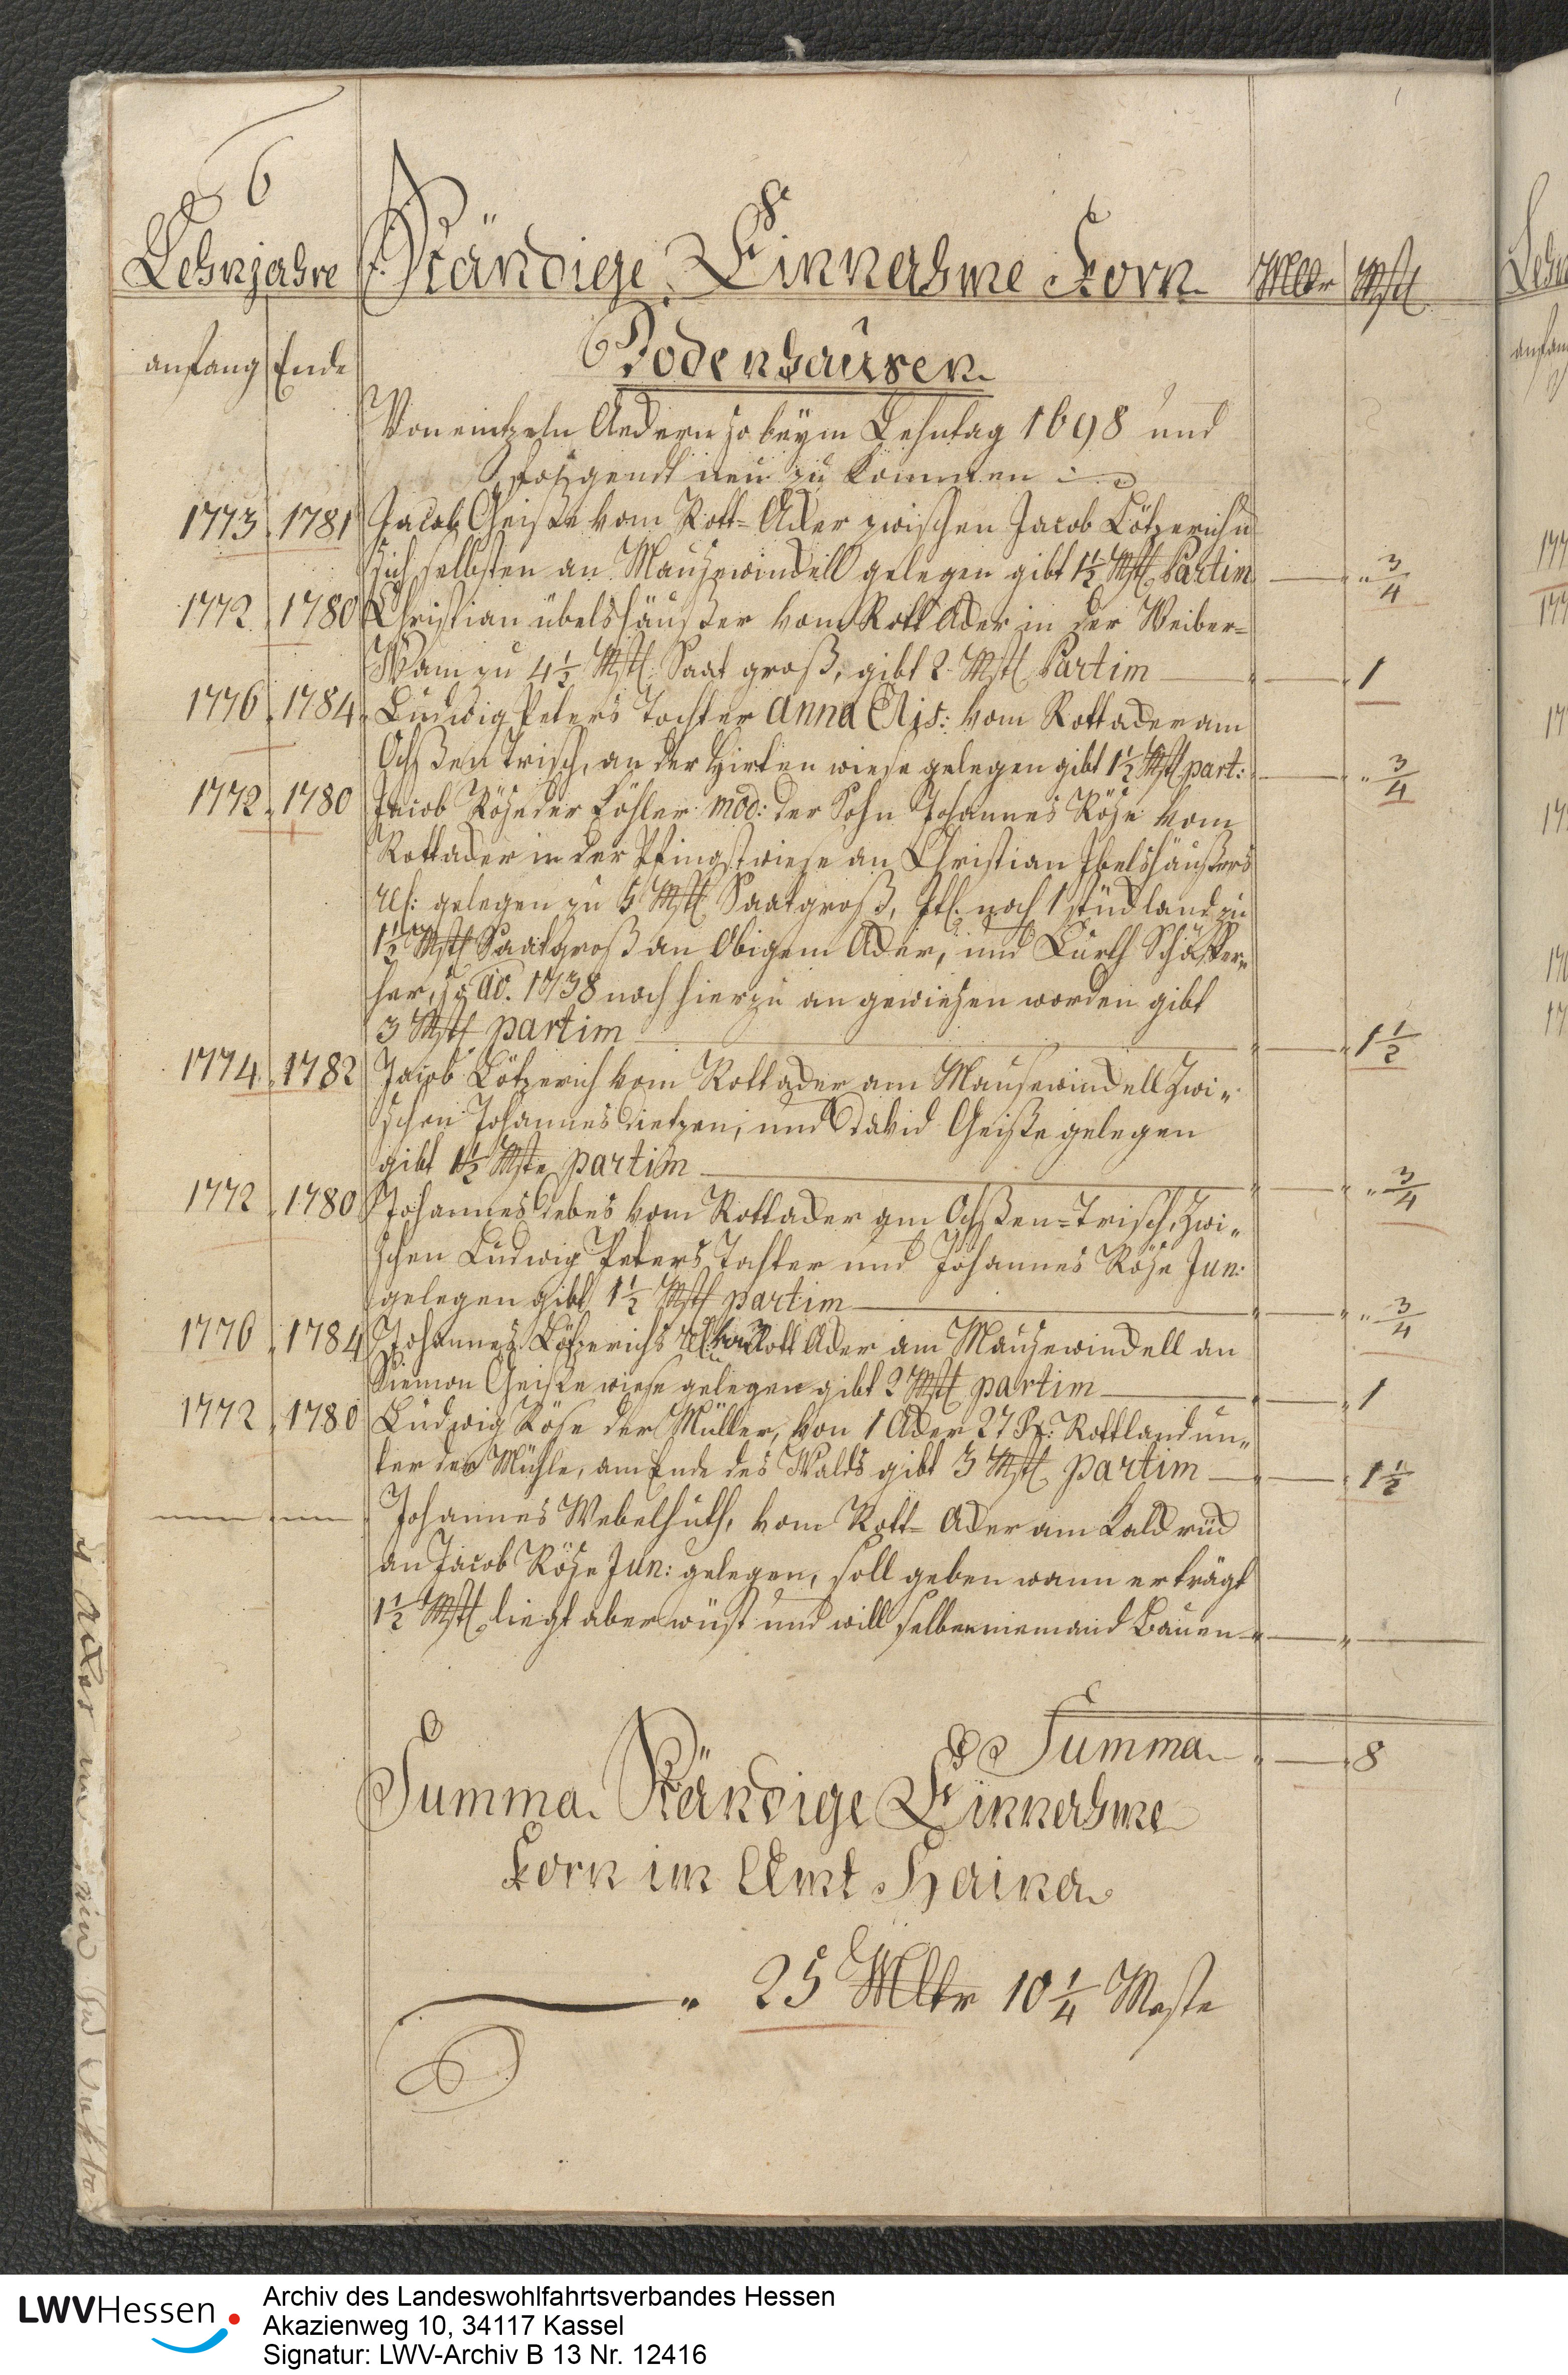 6
Lehnjahre Ständige Einnahme Korn Mltr Mst
anfang Ende Dodenhausen
Von eintzeln Aeckern so beym Lehntag 1698 und
folgends neu zu kommen
1773 1781 Jacob Geiße vom Rott-Acker zwischen Jacob Lötzerich u
sich selbsten an Mausewindell gelegen gibt 1½ Mst Partim 3/4
1772 1780 Christian übelshäußer vom Rott Acker in der Weiber-
Wam zu 4½ Mst Saat groß, gibt 2 Mst Partim 1
1776 1784 Ludwig Peters Tochter Anna Elis: vom Rottacker am
Ochßen Trisch, an der Hirten wiese gelegen gibt 1½ Mst part: 3/4
1772 1780 Jacob Röse der Köhler mod: der Sohn Johannes Röse vom
Rottacker in der Pfingstwiese an Christian Ibelshäußers
rel: gelegen zu 5 Mst Saatgroß, It. noch 1 stück land zu
1½ Mst Saatgroß an Obigem Acker, und Curth Schäffer
her, so ao. 1738 noch hierzu an gewiesen worden gibt
3 Mst partim 1½
1774 1782 Jacob Lötzerich vom Rottacker am Mausewindell zwi-
schen Johannes Dietzen, und David Geiße gelegen
gibt 1½ Mste partim 3/4
1772 1780 Johannes Debes vom Rottacker am Ochßen-Trisch, zwi-
schen Ludwig Peters Tochter und Johannes Röse Jun:
gelegen gibt 1½ Mst partim 3/4
1776 1784 Johannes Lötzerichs rel: vom Rott Acker am Mausewindell an
Siemon Geiße wiese gelegen gibt 2 Mst partim 1
1772 1780 Ludwig Röse der Müller, von 1 Acker 27 R: Rottland un-
ter der Mühle, am Ende des Walds gibt 3 Mst partim 1½
Johannes Webelhuth, vom Rott-Acker am Kaldrück
an Jacob Röse Jun: gelegen, soll geben wann er trägt
1½ Mst liegt aber wüst und will selben niemand Bauen
Summa 8
Summa Ständige Einnahme
Korn im Amt Haina
25 Mltr 10 1/4 Meste
LWVHessen
Archiv des Landeswohlfahrtsverbandes Hessen
Akazienweg 10, 34117 Kassel
Signatur: LWV-Archiv B 13 Nr. 12416